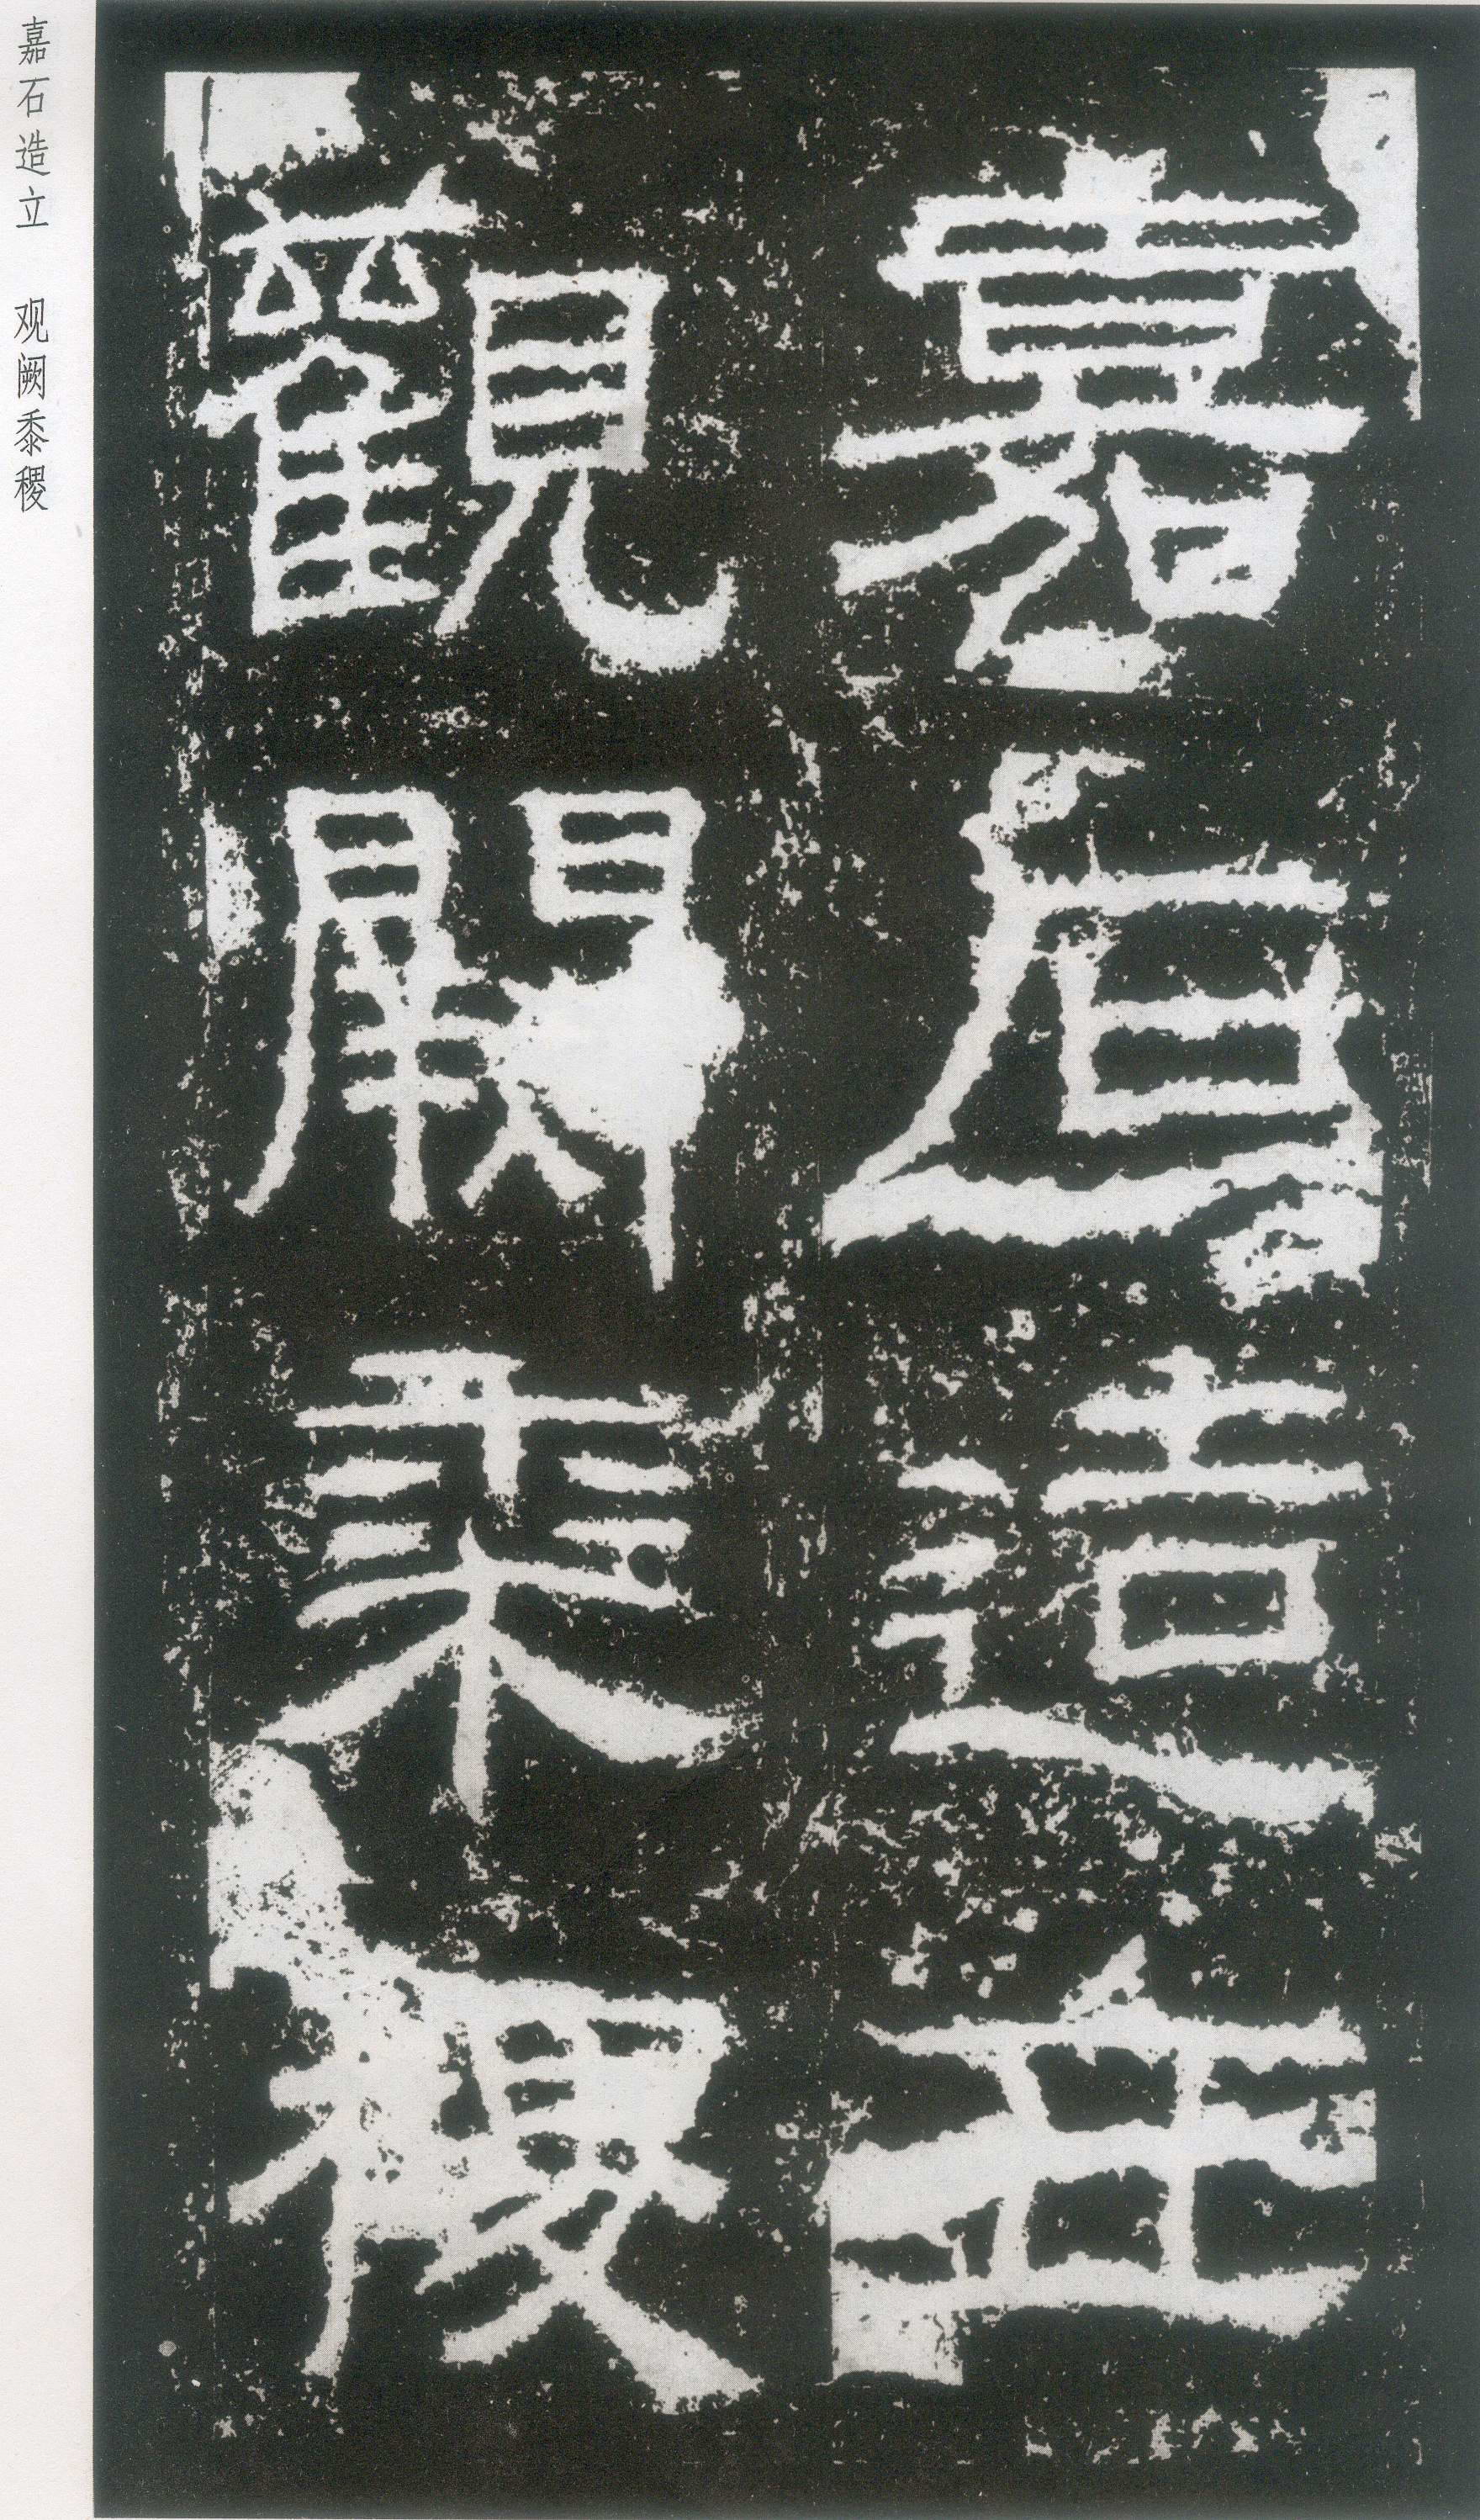 嘉石造立
觀闕黍稷
嘉石造立　观阙黍稷